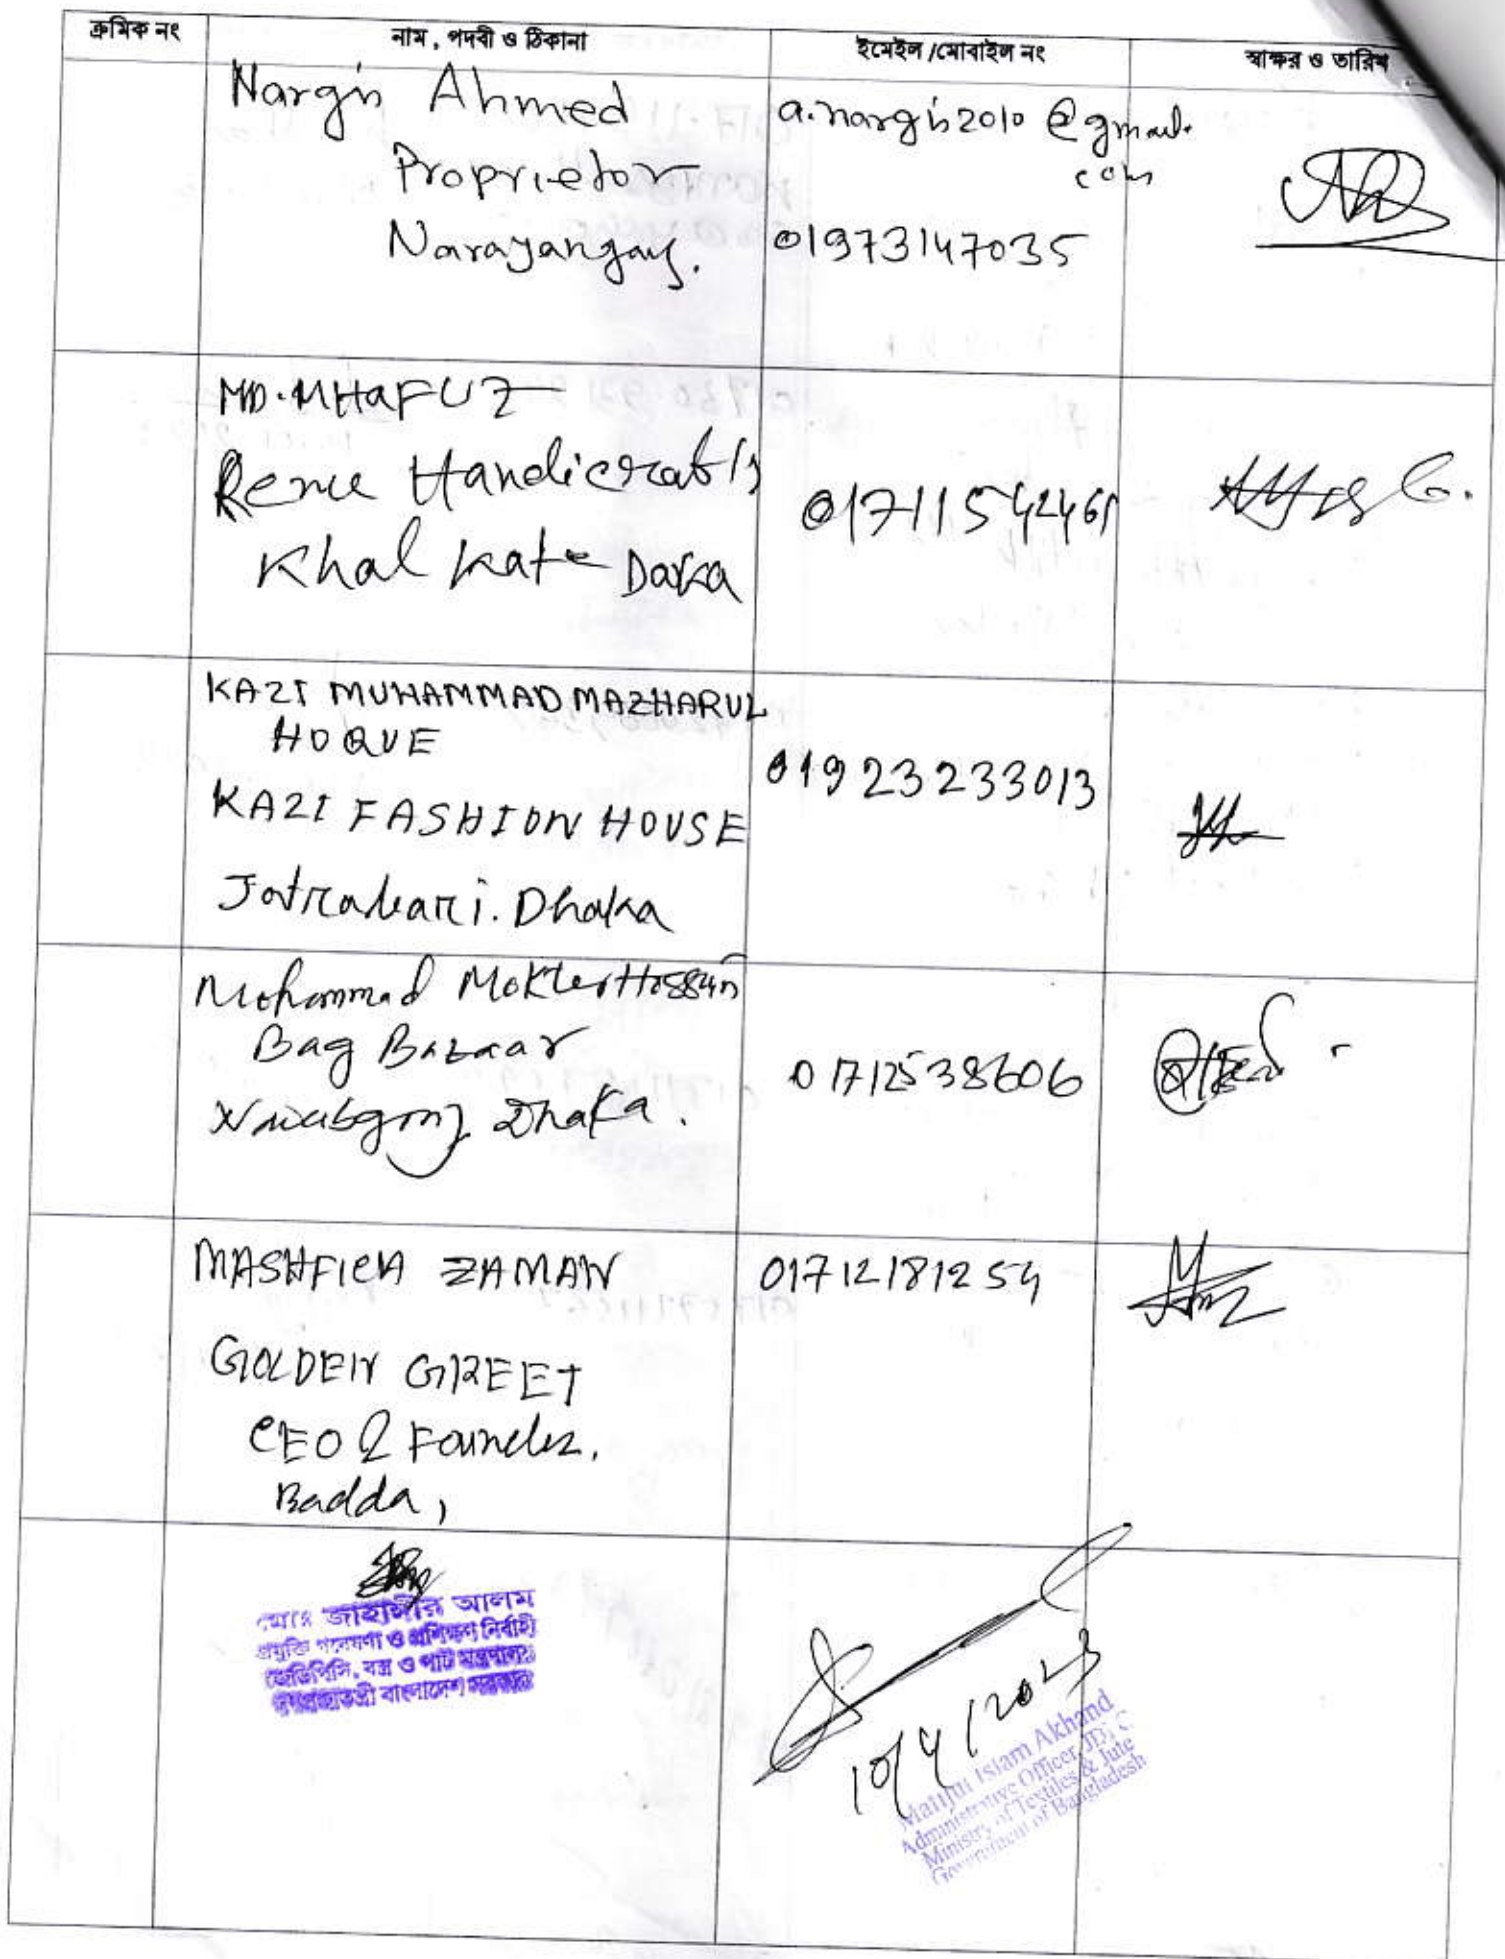 ক্রমিক নং
নাম, পদবী ও ঠিকানা
ইমেইল /মোবাইল নং
স্বাক্ষর ও তারিখ
Nargis Ahmed
Proprietor
Narayangonj.
a.nargis2010@gmail.
com
01973147035
MD. MHaFUZ
Renu Handicrafts
Khal Kate Daka
01711542461
KAZI MUHAMMAD MAZHARUL
HOQUE
KAZI FASHION HOUSE
Jatrabari. Dhaka
01923233013
Mohammad Mokter Hossain
Bag Bazaar
Nawabgonj Dhaka.
01712538606
MASHFICA ZAMAN
GOLDEN GREET
CEO & Founder.
Badda,
01712181254
মোঃ জাহাঙ্গীর আলম
প্রযুক্তি গবেষণা ও প্রশিক্ষণ নির্বাহী
জেডিপিসি, বস্ত্র ও পাট মন্ত্রণালয়
গণপ্রজাতন্ত্রী বাংলাদেশ সরকার
10/4/2023
Manjur Islam Akhand
Administrative Officer, JDPC
Ministry of Textiles & Jute
Government of Bangladesh